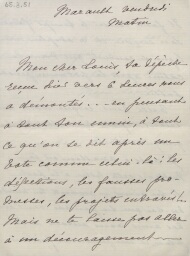 Marault vendredi
Matin
Mon cher Louis, ta dépêche
reçue hier vers 6 heures nous
a démontés... en pensant
à tout ton ennui, à tout
ce qu'on se dit après un
vote comme celui-là: les
défections, les fausses pro-
messes, les projets entravés!
Mais ne te laisse pas aller
à un découragement